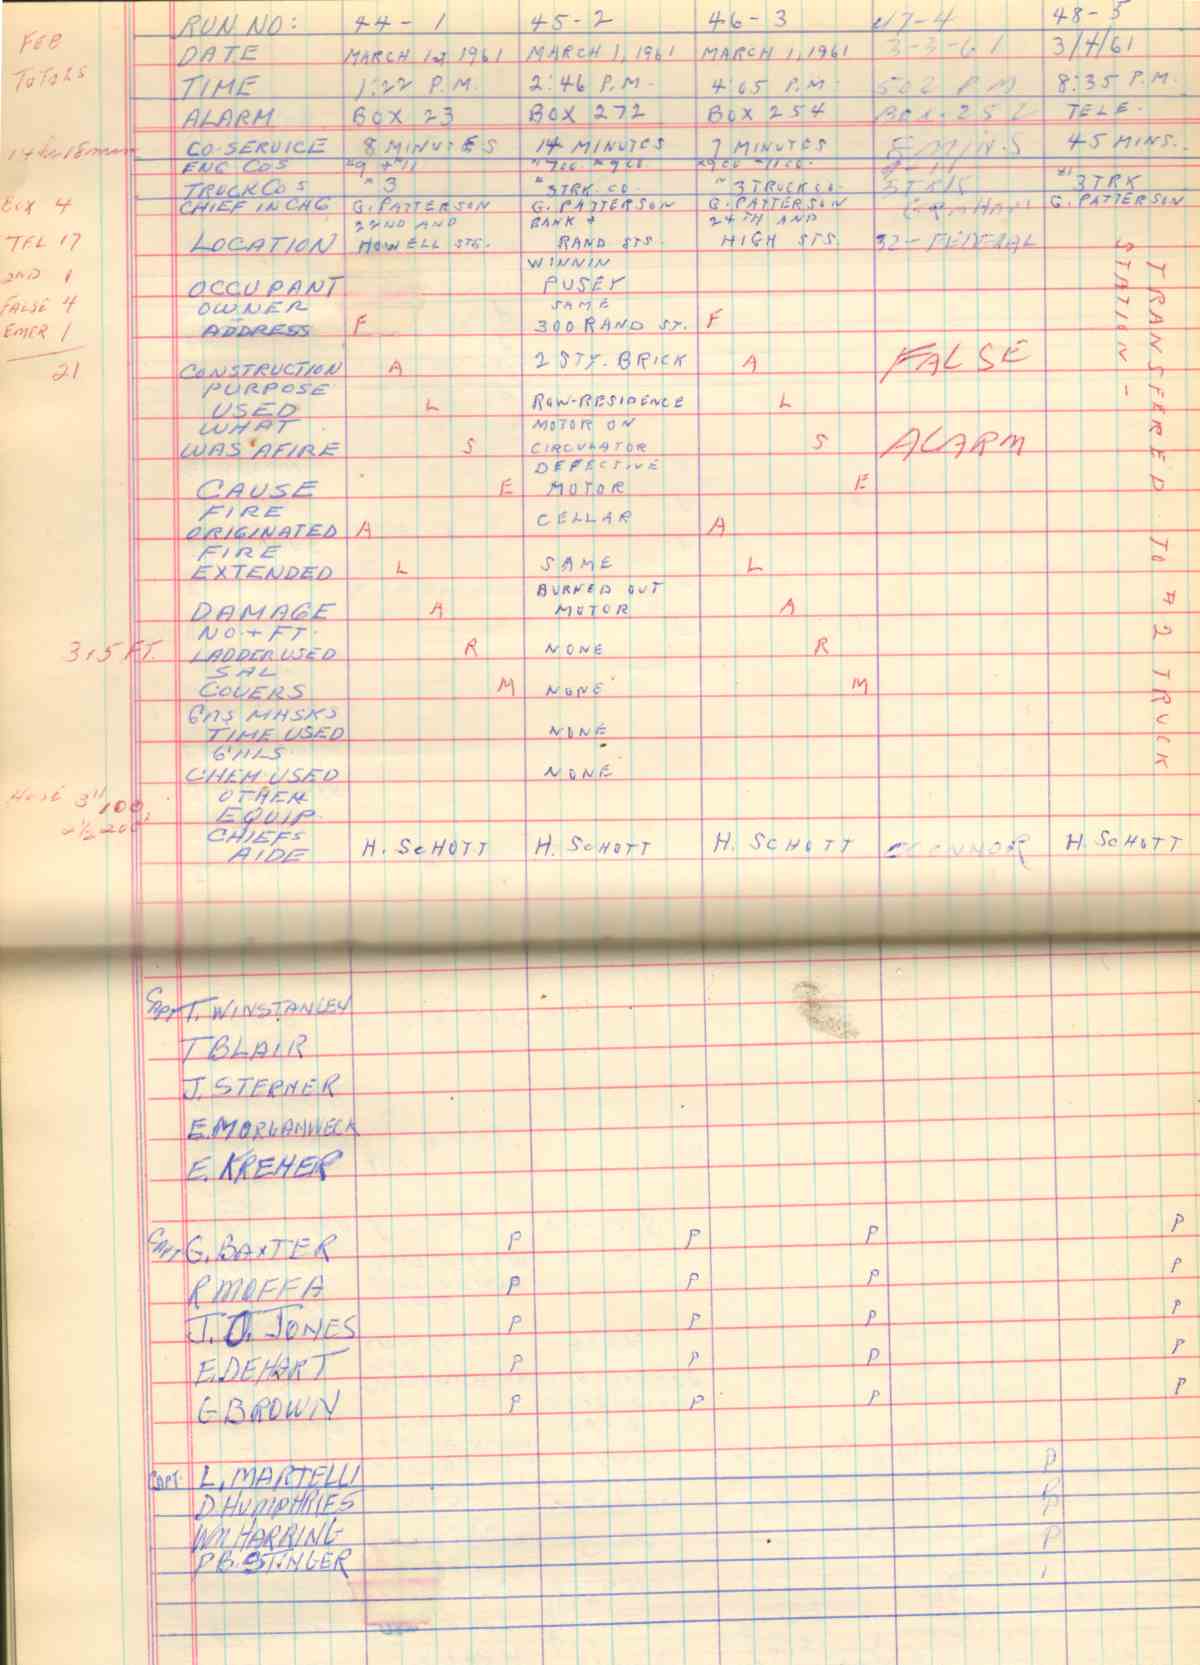 RUN NO: 44-1 45-2 46-3 47-4 48-5
DATE MARCH 1, 1961 MARCH 1, 1961 MARCH 1, 1961 3-3-61 3/4/61
TIME 1:22 P.M. 2:46 P.M. 4:05 P.M. 502 P.M 8:35 P.M.
ALARM BOX 23 BOX 272 BOX 254 BOX 252 TELE.
CO-SERVICE 8 MINUTES 14 MINUTES 7 MINUTES MINS 45 MINS.
ENG COS "9 + "11
TRUCK COS "3 "3TRK. CO. "3 TRUCK CO. 3 TRK
CHIEF IN CHG G. PATTERSON G. PATTERSON G. PATTERSON GRAHAM G. PATTERSON
22ND AND BANK + 24TH AND
LOCATION HOWELL STS. RAND STS. HIGH STS. 32- FEDERAL
WINNIN
OCCUPANT PUSEY
OWNER SAME
ADDRESS F 300 RAND ST. F
CONSTRUCTION A 2 STY. BRICK A FALSE
PURPOSE
USED L ROW-RESIDENCE L
WHAT MOTOR ON
WAS AFIRE S CIRCULATOR S ALARM
DEFECTIVE
CAUSE E MOTOR E
FIRE
ORIGINATED A CELLAR A
FIRE
EXTENDED L SAME L
BURNED OUT
DAMAGE A MOTOR A
NO. + FT.
LADDER USED R NONE R
SAL
COVERS M NONE M
GAS MASKS
TIME USED NONE
GALS.
CHEM USED NONE
OTHER
EQUIP.
CHIEFS
AIDE H. SCHOTT H. SCHOTT H. SCHOTT O'CONNOR H. SCHOTT
TRANSFERED TO #2 TRUCK
STATION -
FEB
TOTALS
BOX 4
TEL 17
2ND 1
FALSE 4
EMER 1
21
315 FT.
HOSE 3" 100
2 1/2 200
CAPT T. WINSTANLEY
T BLAIR
J. STERNER
E. MORGANWECK
E. KREHER
CAPT G. BAXTER P P P P
R MOFFA P P P P
J. J. JONES P P P P
E. DEHART P P P P
G BROWN P P P P
CAPT. L. MARTELLI P
D HUMPHRIES P
WM HARRING P
P B. STINGER